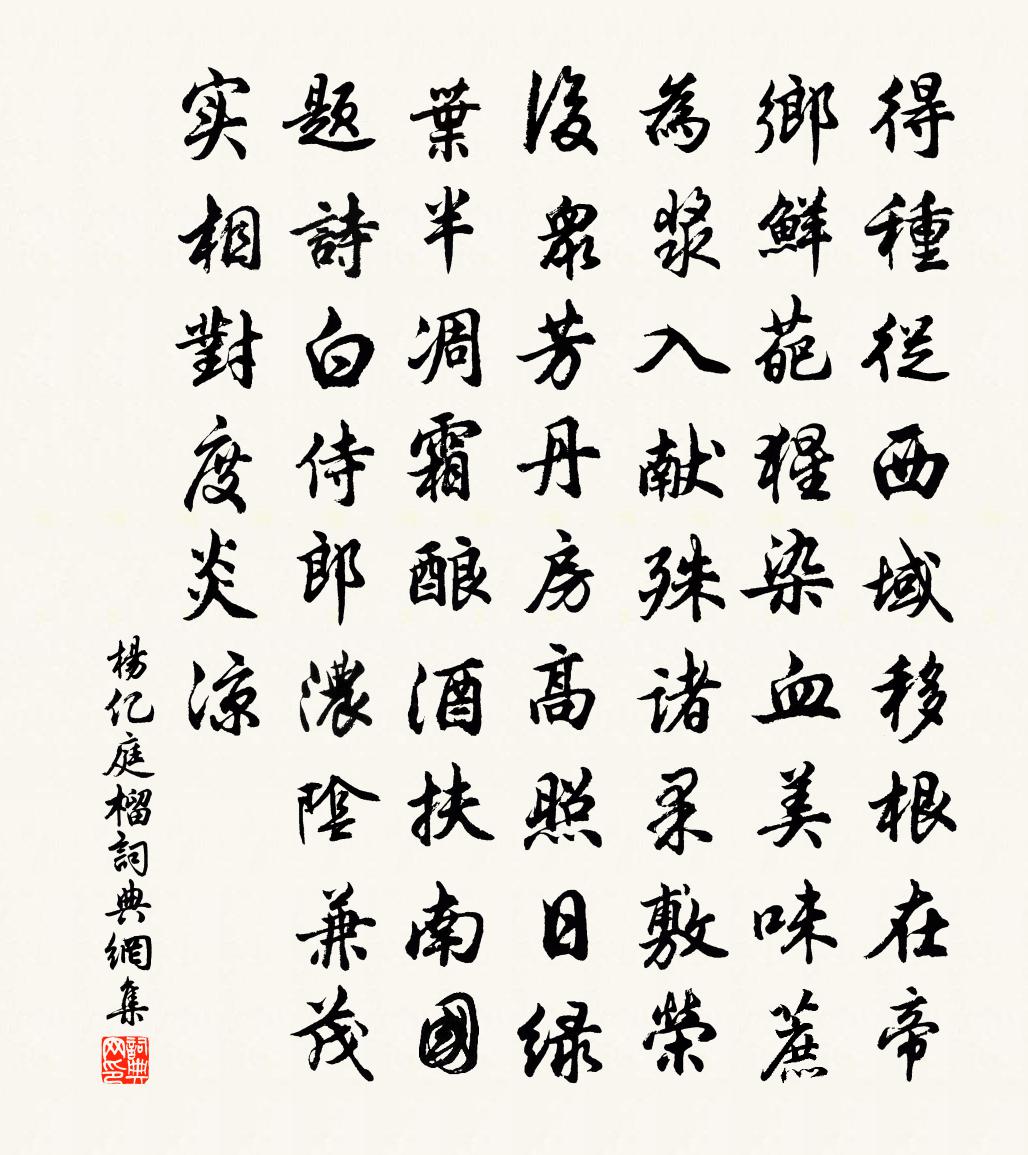 得種從西域移根在帝
鄉鮮葩猩染血美味蔗
為漿入献殊诸柔敷榮
後眾芳丹房高照日绿
葉半凋霜酿酒扶南國
题詩白侍郎濃陰兼茂
实相對度炎凉
楊亿庭榴詞典網集
詞典网印